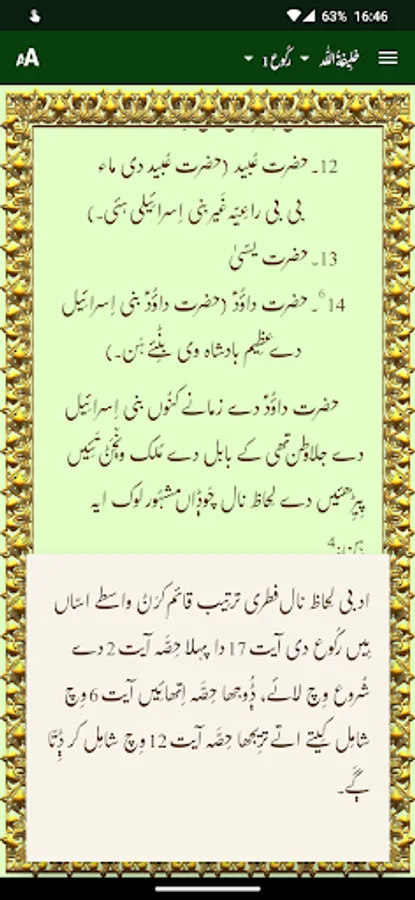 63% 16:46
AA رُکوع 1 خلیفۃُ اللہ
12۔ حضرت عُبید (حضرت عُبید دی ماء
بی بی راعیّہ غَیر بنی اِسرائیلی ہئی۔)
13۔ حضرت یسّیٰ
14 6۔ حضرت داؤدؑ (حضرت داؤدؑ بنی اِسرائیل
دے عظِیم بادشاہ وی بݨئے ہَن۔)
حضرت داؤدؑ دے زمانے کنُوں بنی اِسرائیل
دے جلاوطن تھی کے بابل دے مُلک ونڄݨ تَئیں
پِیڑھئیں دے لِحاظ نال چَوڈاں مشہُور لوک ایہ
ہِن: 4
ادبی لِحاظ نال فِطری ترتیب قائم کرݨ واسطے اسّاں
ہِیں رُکوع دی آیت 17 دا پہلا حِصّہ آیت 2 دے
شُروع وِچ لائے، ڈُوجھا حِصّہ اِتھائیں آیت 6 وِچ
شامِل کیتے اتے تریجھا حِصّہ آیت 12 وِچ شامِل کر ڈِتّا
ڳئے۔